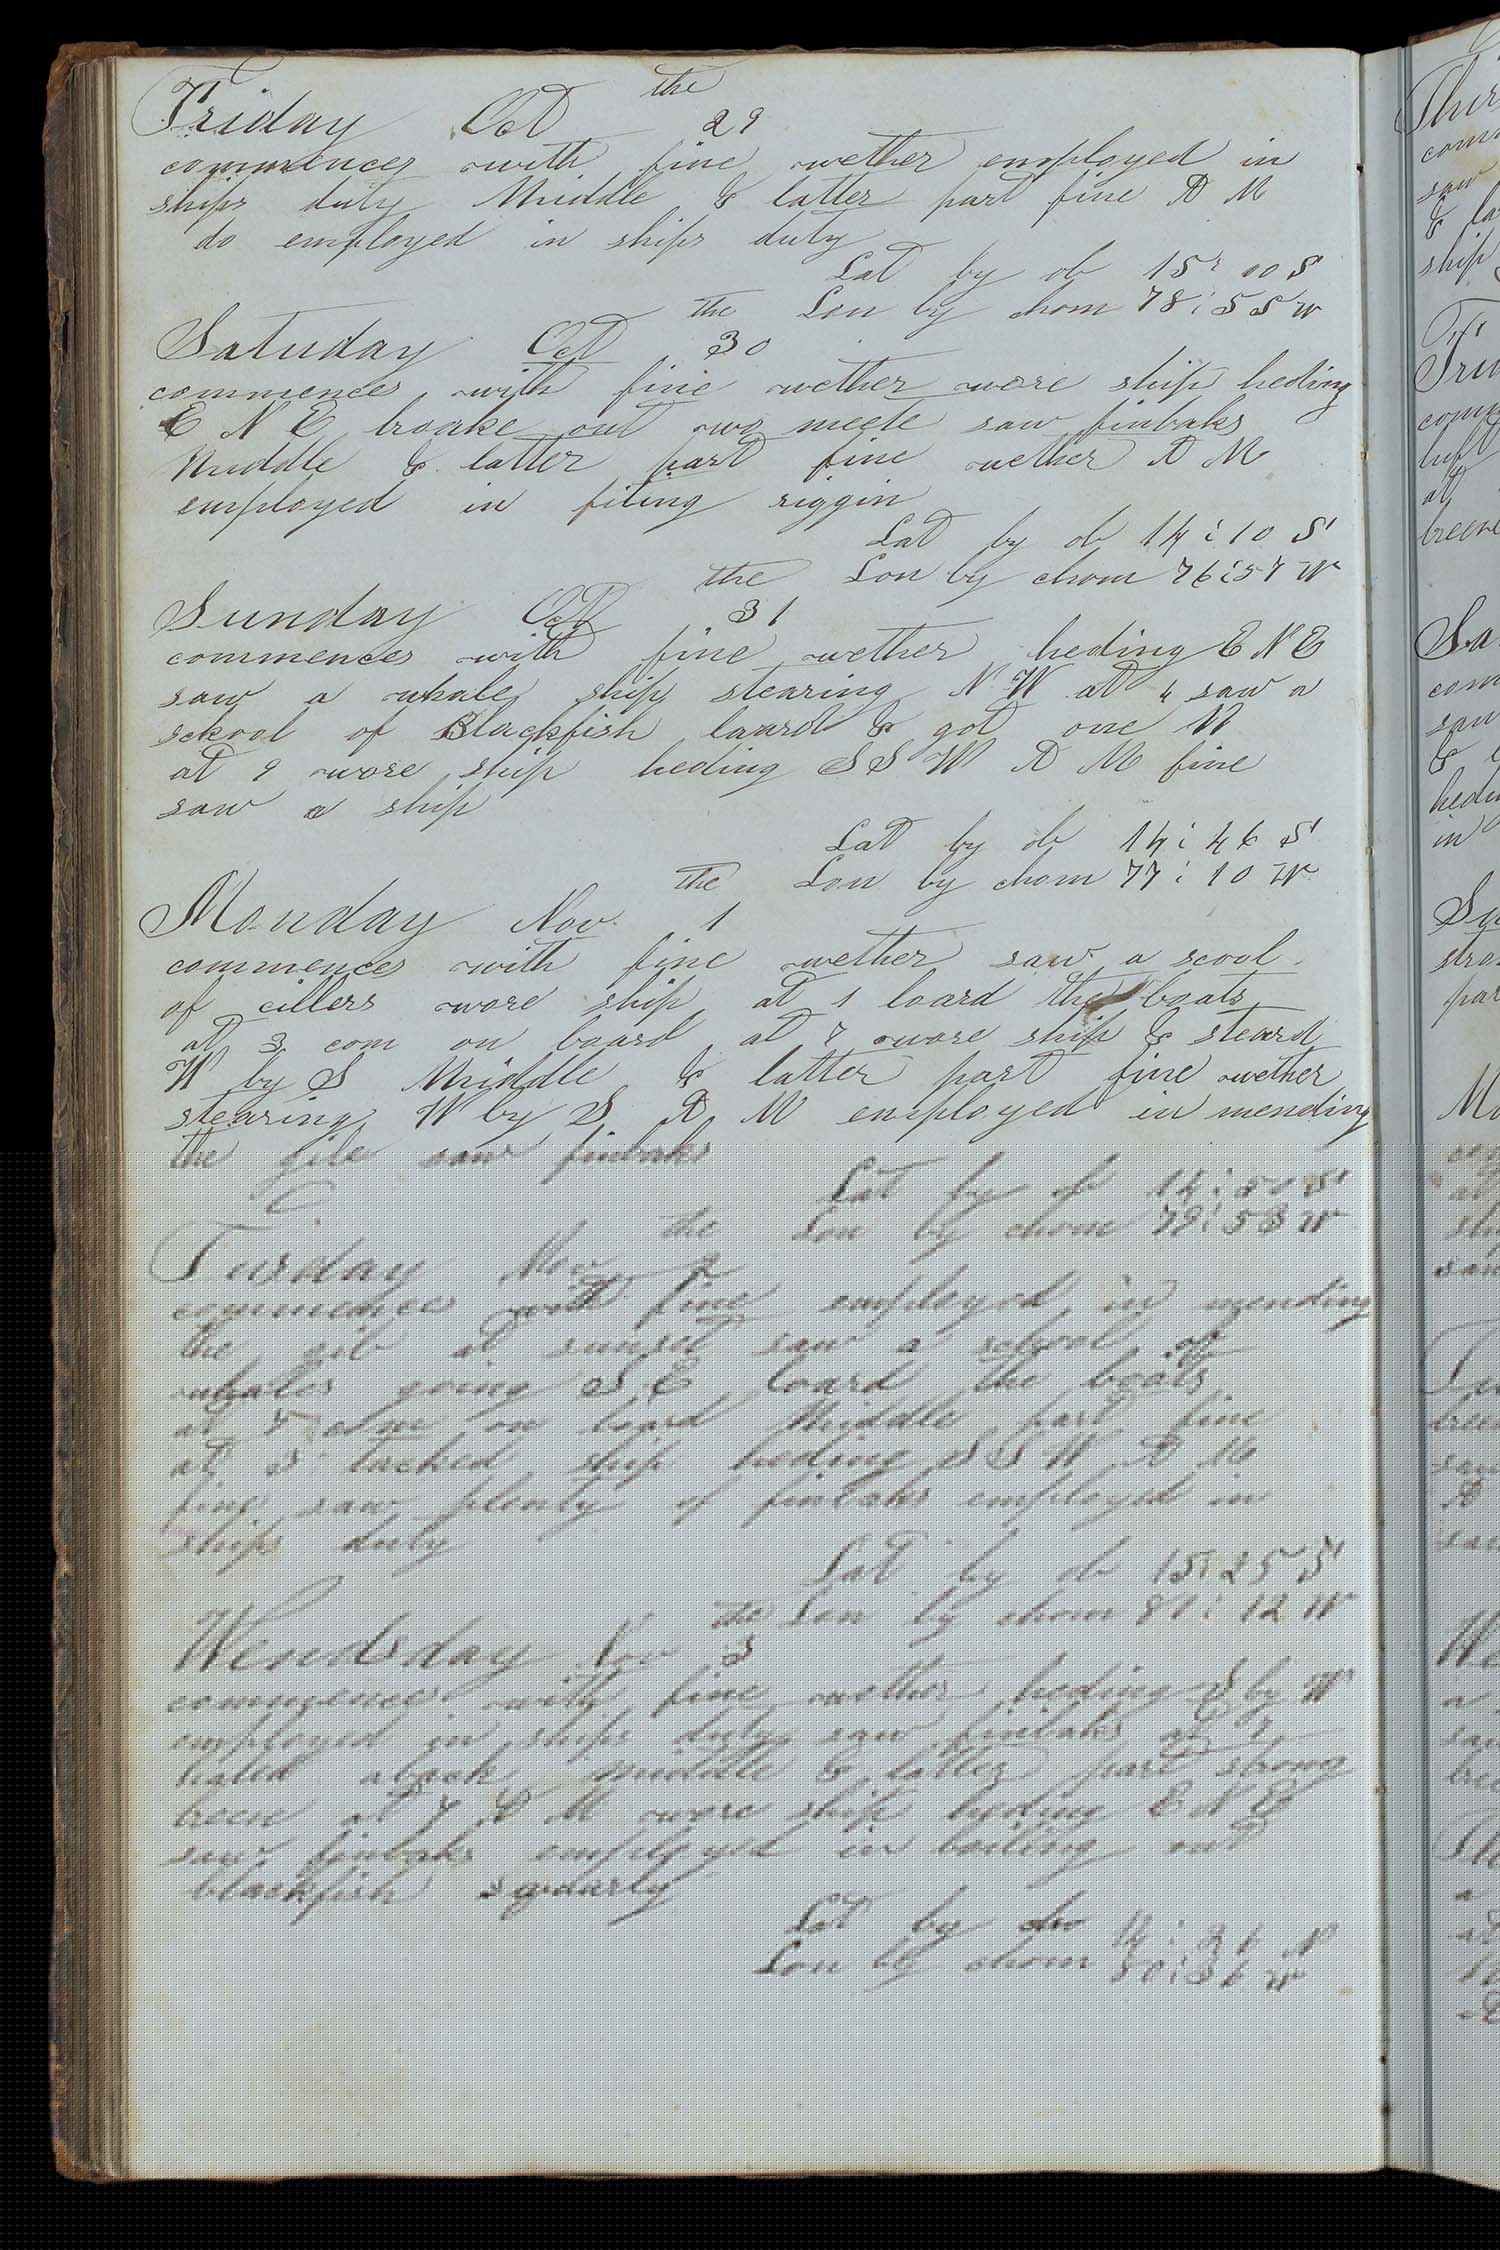 Friday Oct the 29
commences with fine wether employed in
ships duty Middle & latter part fine A M
do employed in ships duty
Lat by ob 15: 00 S
Lon by chom 78:55 W
Satuday Oct the 30
commences with fine wether wore ship heding
E N E broake out two meete saw finbaks
Middle & latter part fine wether A M
employed in fiting riggin
Lat by ob 14:10 S
Lon by chom 76:57 W
Sunday Oct the 31
commences with fine wether heding E N E
saw a whale ship stearing N W at 4 saw a
school of Blackfish loard & got one
at 9 wore ship heding S S W A M fine
saw a ship
Lat by ob 14:46 S
Lon by chom 77:10 W
Monday Nov the 1
commences with fine wether saw a scool
of cillers wore ship at 1 loard the boats
at 3 com on board at 7 wore ship & steard
W by S Middle & latter part fine wether
stearing W by S A M employed in mending
the gib saw finbaks
Lat by ob 14:50 S
Lon by chom 79:53 W
Tusday Nov the 2
commences with fine employed in mending
the gib at sunset saw a school of
whales going S E loard the boats
at 7 come on board Middle part fine
at 3 tacked ship heding S S W A M
fine saw plenty of finbaks employed in
ships duty
Lat by ob 15:25 S
Lon by chom 81:12 W
Wendsday Nov the 3
commences with fine wether heding S by W
employed in ships duty saw finbaks at
haled aback middle & latter part strong
breen at 7 A M wore ship heding E N E
saw finbaks employed in boiling out
blackfish
Lat by
Lon by chom 80:36 W